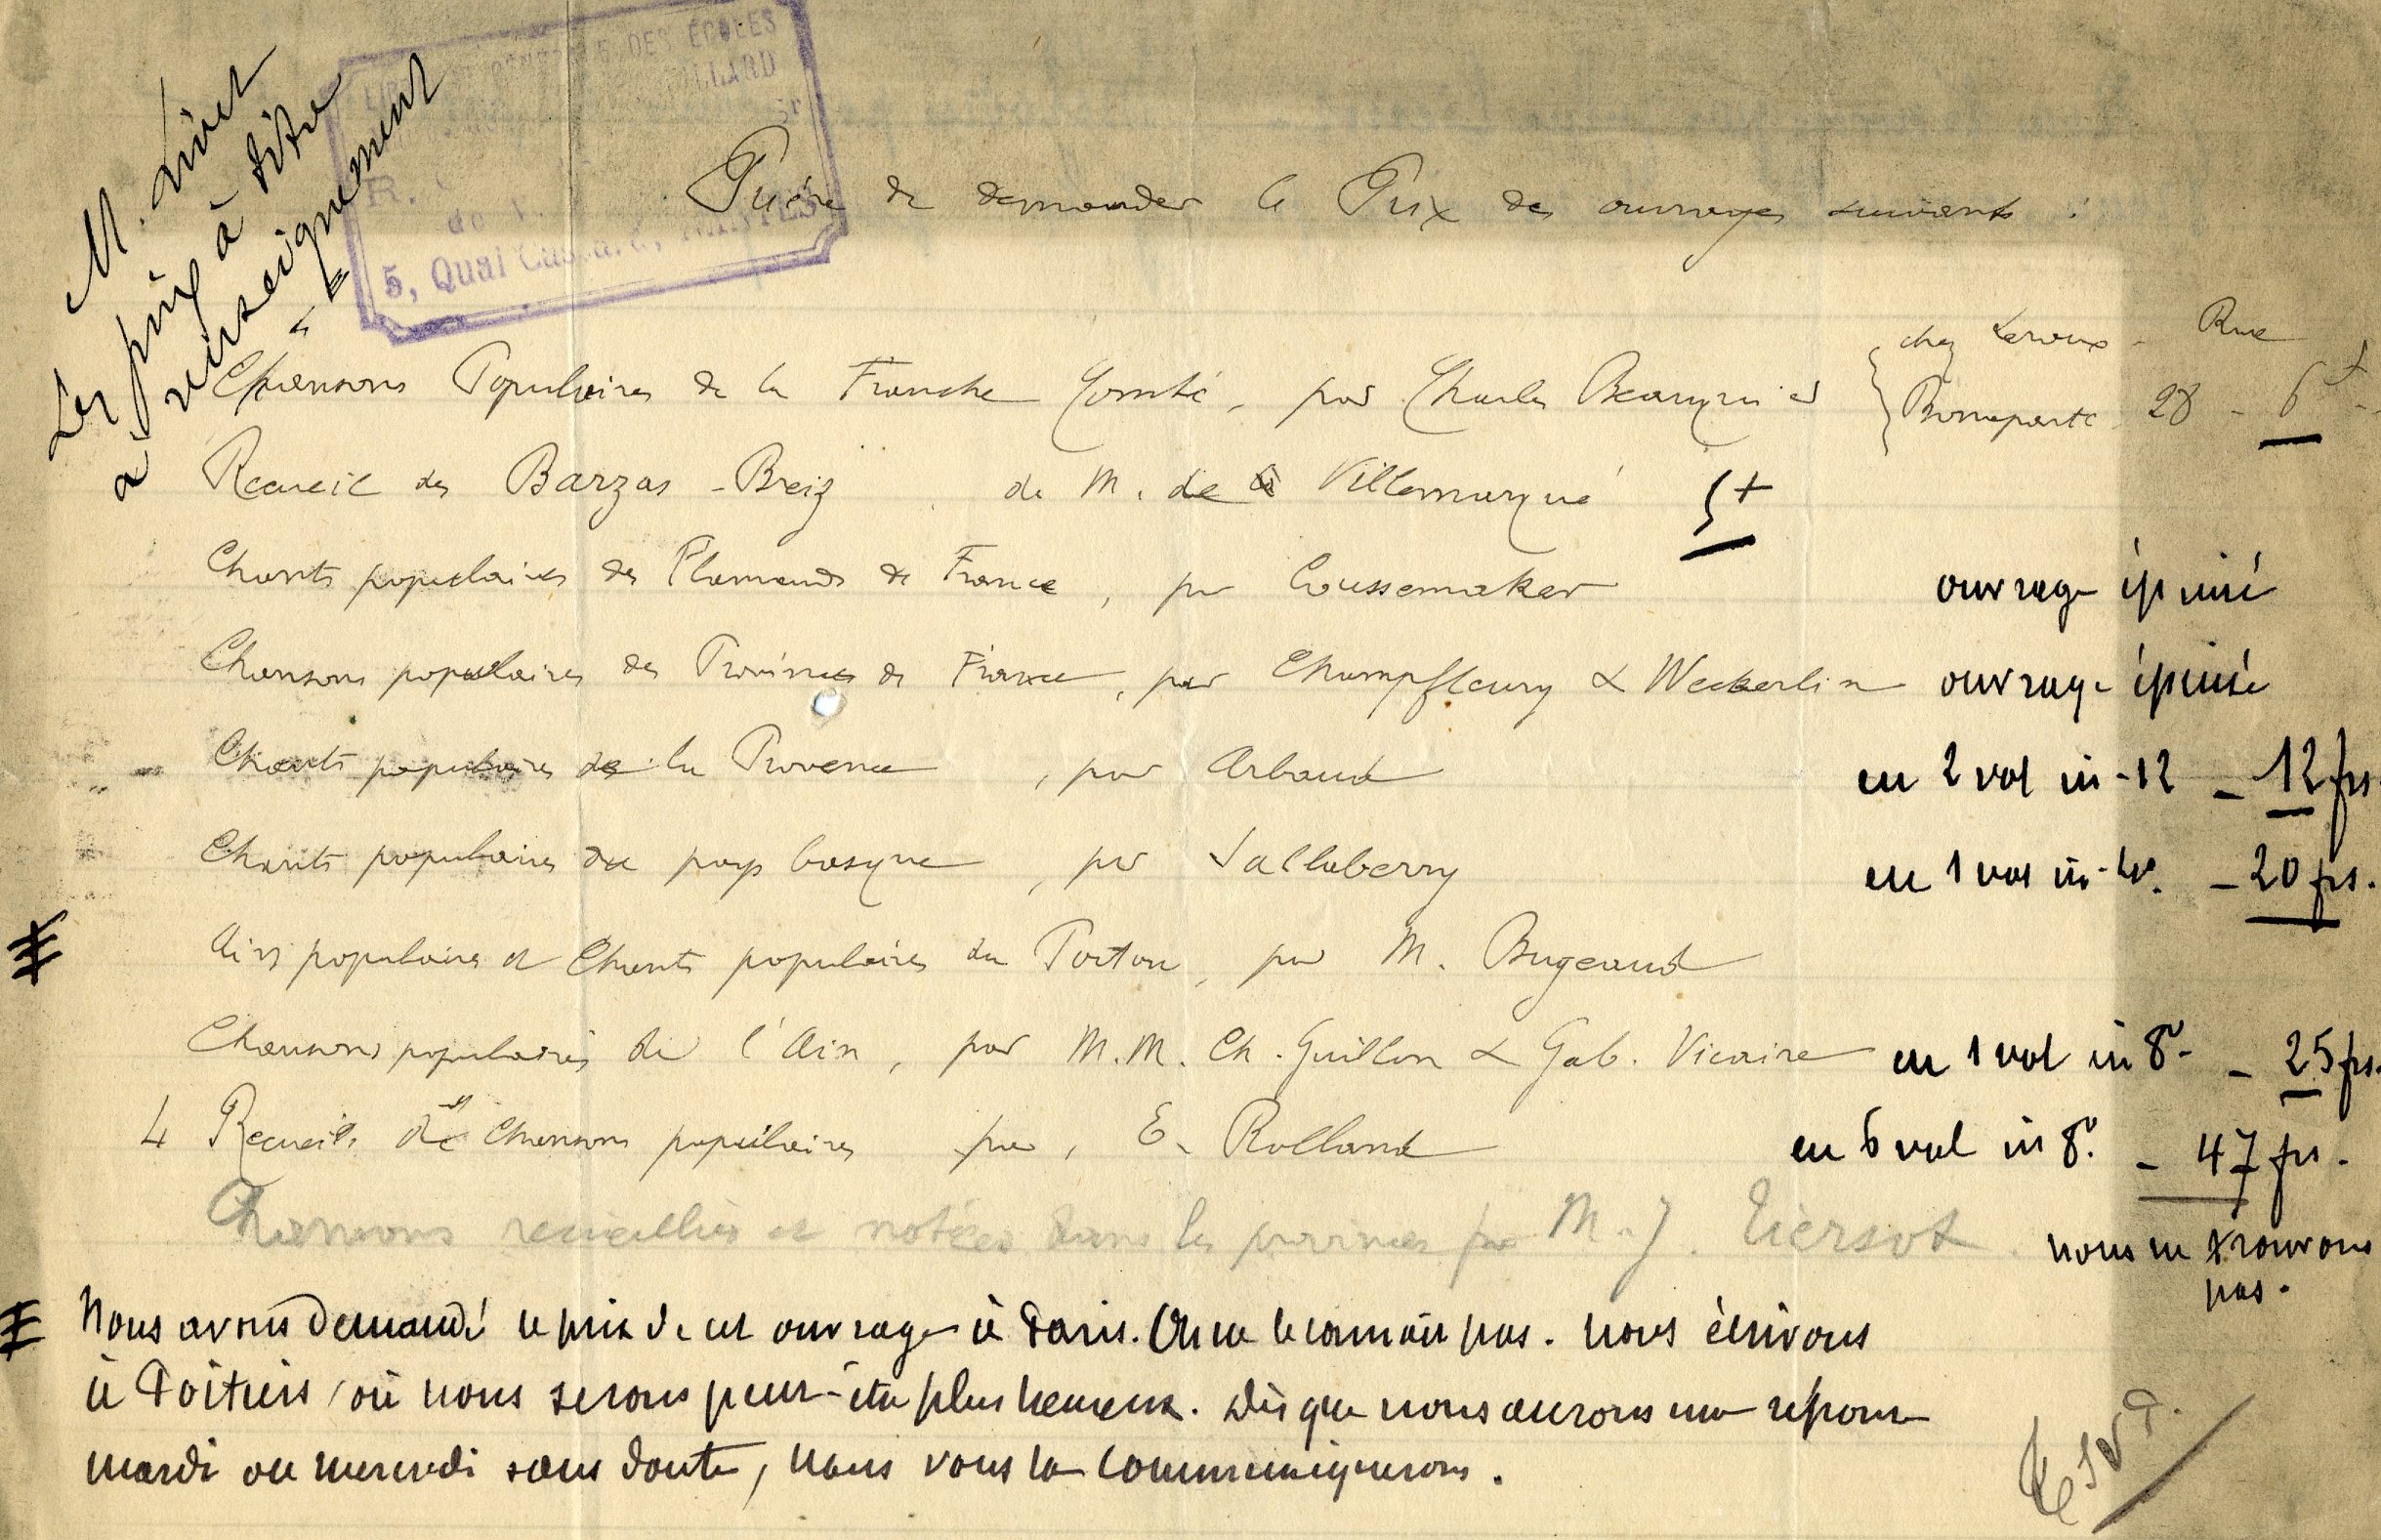 DES ÉCOLES
5, Quai
NANTES
M.
Les prix à titre
renseignement
Prière de demander le Prix des ouvrages suivants :
Chansons Populaires de la Franche Comté, par Charles Beauquier
chez Leroux - Rue
Bonaparte 28 - 6f
Recueil des Barzas-Breiz de M. de Villemarqué 5+
Chants populaires des Flamands de France, par Coussemaker ouvrage épuisé
Chansons populaires des Provinces de France, par Champfleury & Weckerlin ouvrage épuisé
Chants populaires de la Provence, par Arbaud en 2 vol in-12 - 12 frs.
Chants populaires du pays basque, par Sallaberry en 1 vol in-4o. - 20 frs.
Airs populaires et Chants populaires du Poitou, par M. Bugeaud
Chansons populaires de l'Ain, par M.M. Ch. Guillon & Gab. Vicaire en 1 vol in 8o - 25 frs.
4 Recueils de Chansons populaires par, E. Rolland en 6 vol in 8o. - 47 frs.
Chansons recueillies et notées dans les provinces par M. J. Tiersot. nous ne trouvons
pas.
Nous avons demandé le prix de cet ouvrage à Paris. On ne le connaît pas. Nous écrivons
à Poitiers où nous serons peut-être plus heureux. Dès que nous aurons une réponse
mardi ou mercredi sans doute, nous vous la communiquerons.